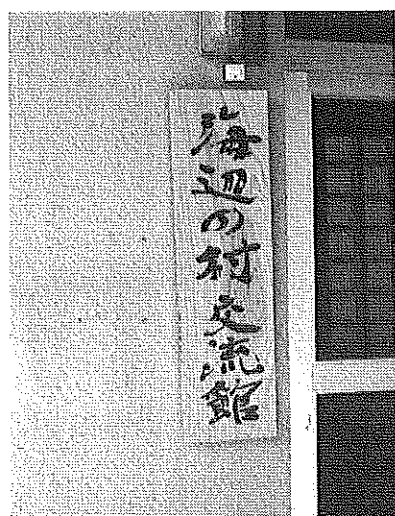 海辺の村交流館